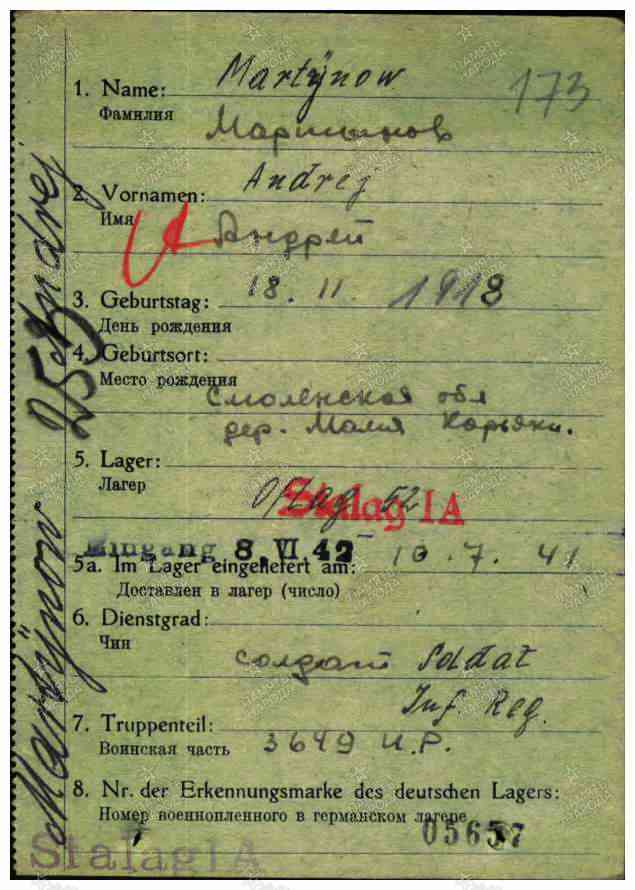 1. Name: Martÿnow 173
Фамилия Мартынов
2. Vornamen: Andrej
Имя Андрей
3. Geburtstag: 18. 11. 1918
День рождения
4. Geburtsort:
Место рождения
Смоленская обл
дер. Малия Карьяки.
5. Lager:
Лагер
Oflag 52
Stalag IA
Eingang 8. VI. 42
5a. Im Lager eingeliefert am: 10. 7. 41
Доставлен в лагер (число)
6. Dienstgrad:
Чин
солдат Soldat
Inf. Reg.
7. Truppenteil:
Воинская часть 3649 И.Р.
8. Nr. der Erkennungsmarke des deutschen Lagers:
Номер военнопленного в германском лагере
05657
Stalag IA
Martÿnow 253 Andrej